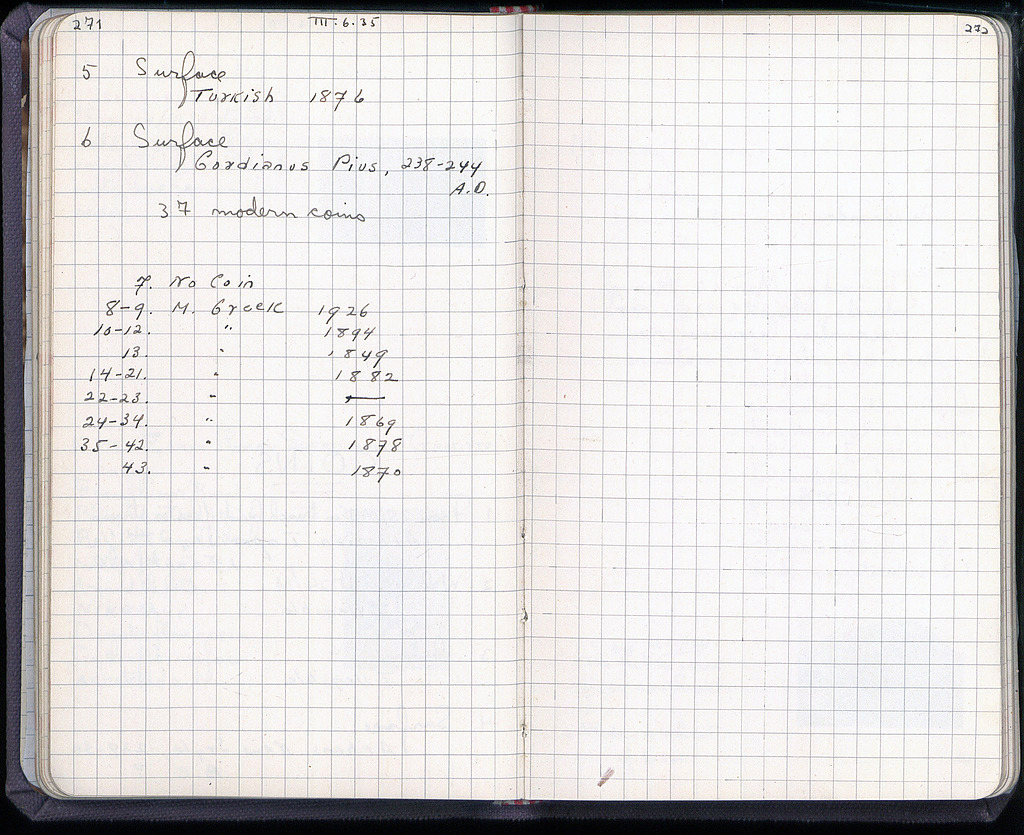 271
III.6.35
5 Surface
Turkish 1876
6 Surface
Gordianus Pius, 238-244
A.D.
37 modern coins
7. No Coin
8-9. M. Greek 1926
10-12. " 1894
13. " 1849
14-21. " 1882
22-23. " —
24-34. " 1869
35-42. " 1878
43. " 1870
272